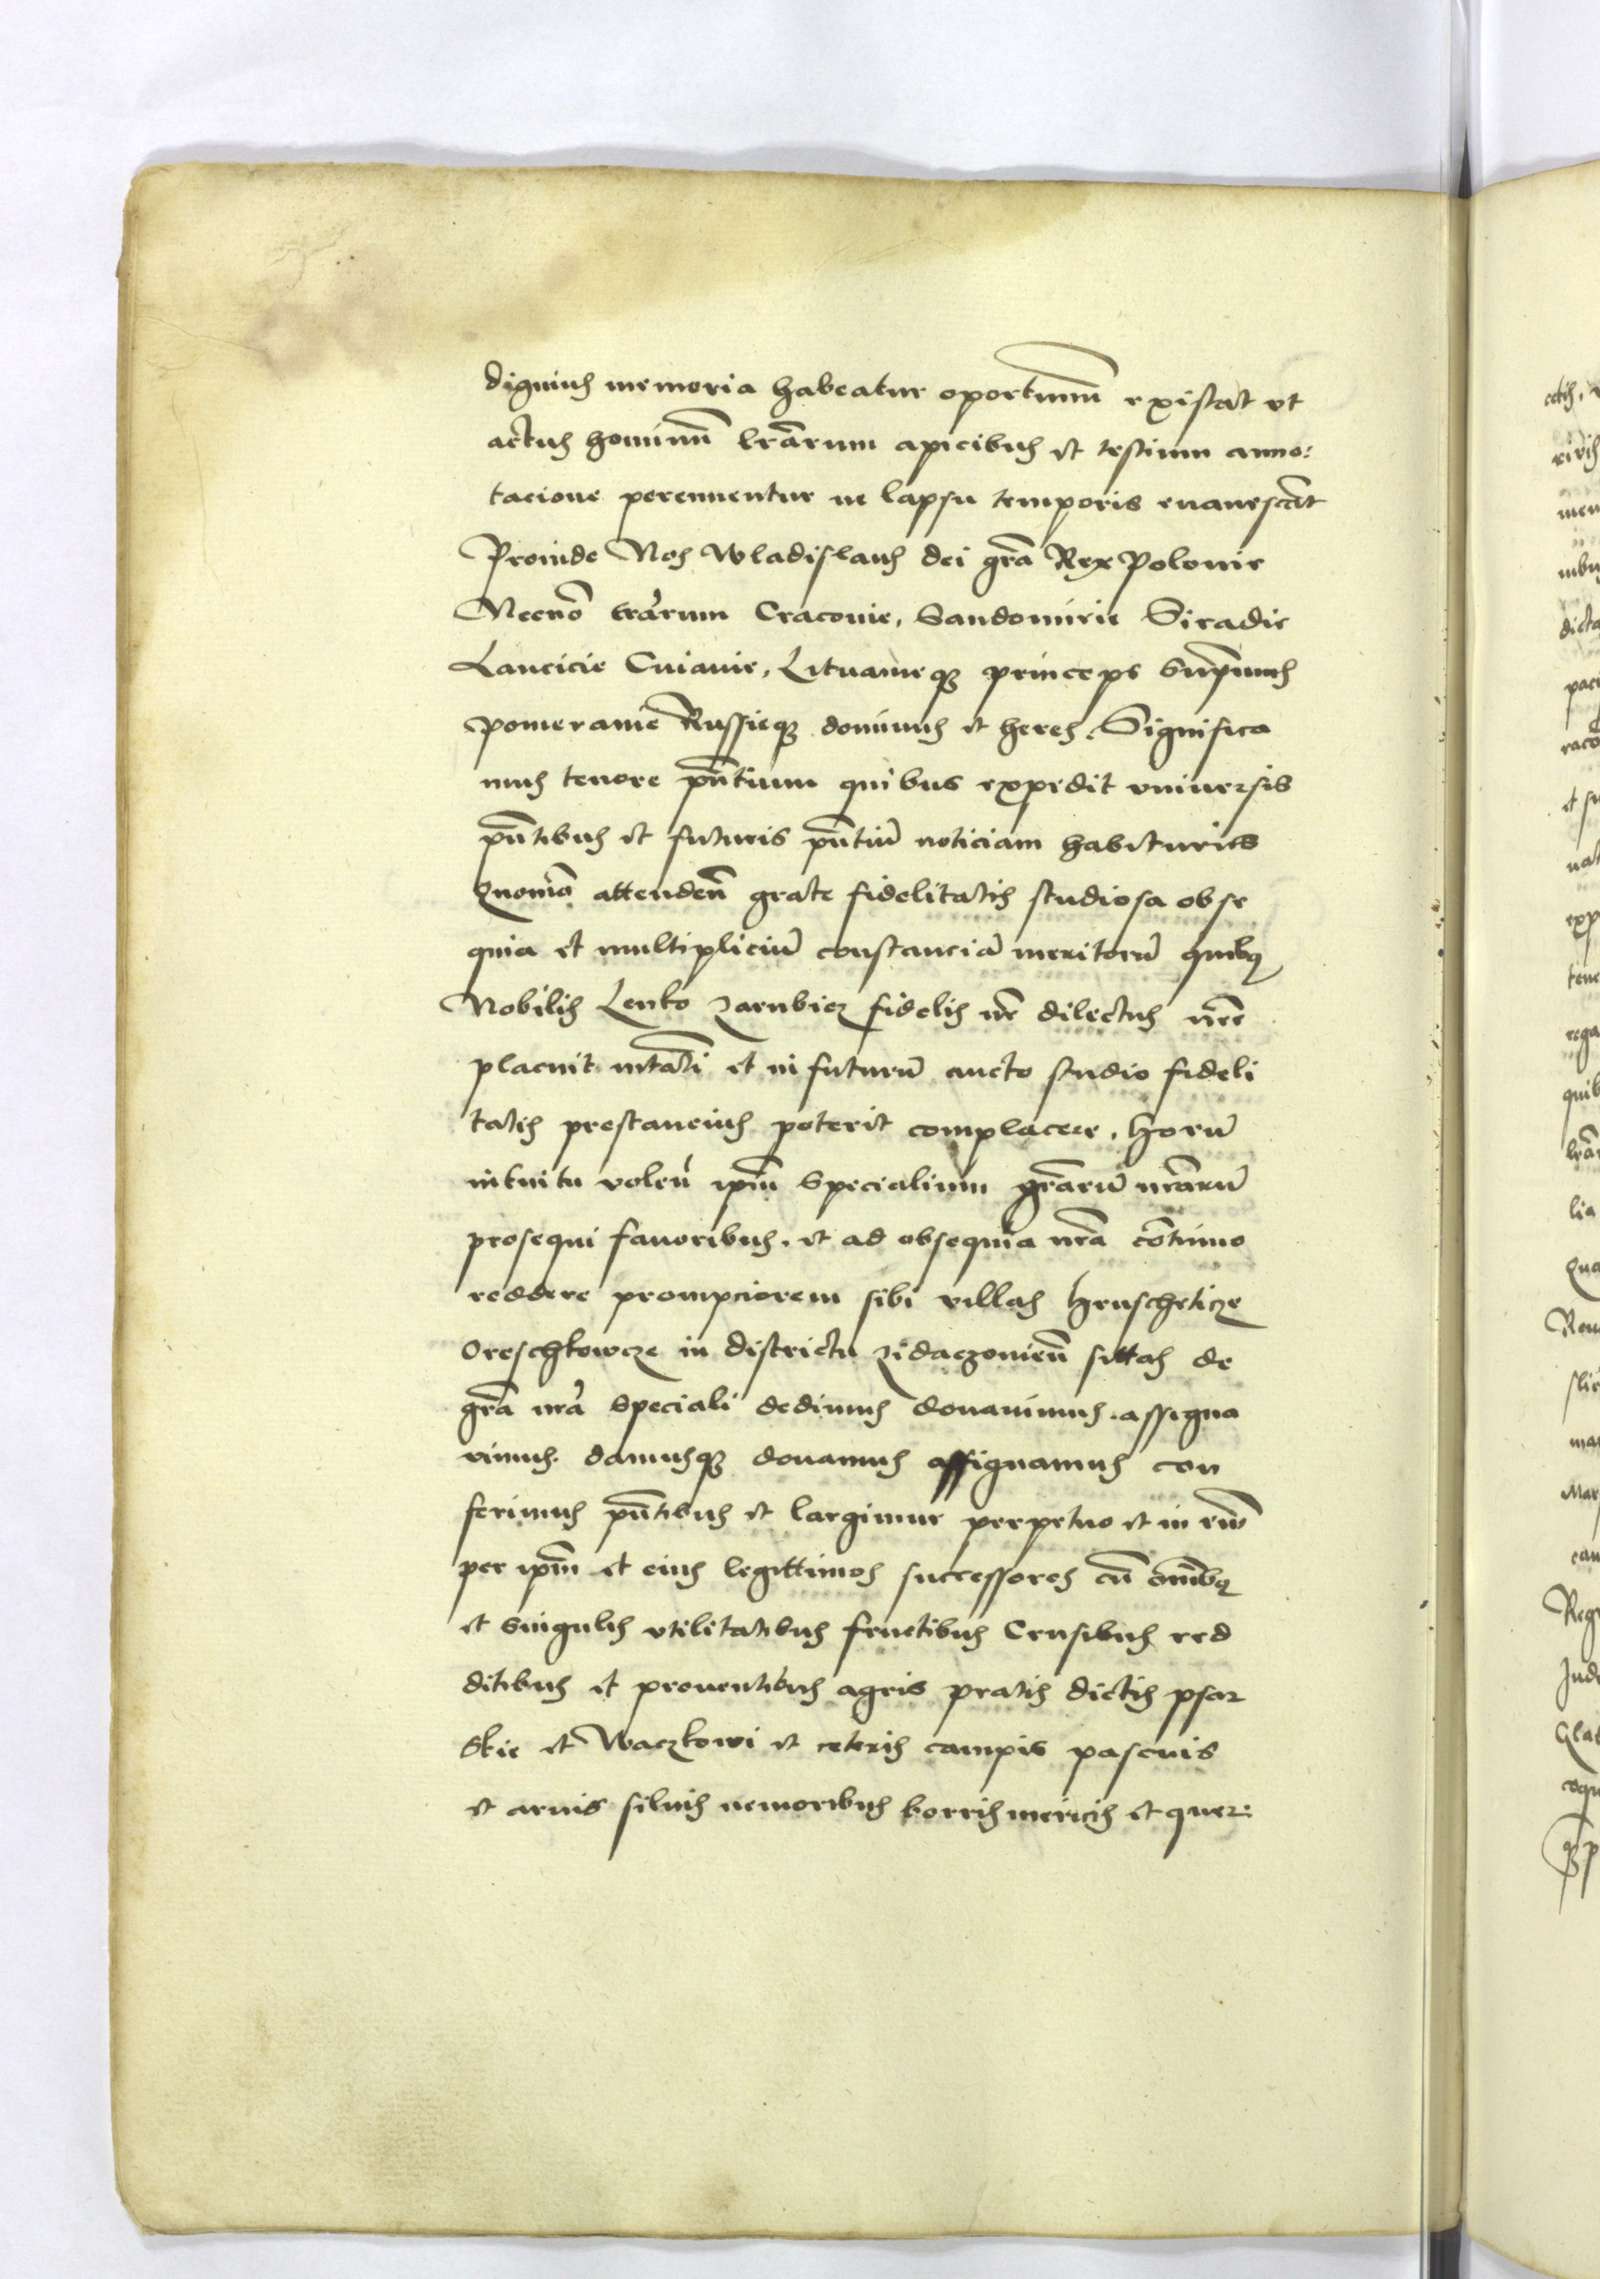 dignius memoria habeatur oportunum existat vt
actus hominum lrarum apicibus et testium anno:
tacione perennentur ne lapsu temporis euanescat
Proinde Nos Wladislaus dei gra Rex Polonie
Necno trarum Cracouie, Sandomirie Siradie
Lancicie Cuiauie, Lituanieqz princeps supremus
pomeranie Russieqz dominus et heres. Significa
mus tenore pntium quibus expedit vniuersis
pntibus et futuris pntiu noticiam habituris
Quomo attenden grate fidelitatis studiosa obse
quia et multipliciu constancia meritoru quibus
Nobilis Lenko zarubicz fidelis nr dilectus nre
placuit mtati et in futuru aucto studio fideli
tatis prestancius poterit complacere. Horu
intuitu volen ipm specialium graru nraru
prosequi fauoribus. et ad obsequia nra continuo
reddere prompciorem sibi villas Hruscheticze
Oreschkowcze in districtu zidaczonien sittas de
gra nra speciali dedimus donauimus. assigna
vimus. damusqz donamus assignamus con
ferimus pntibus et largimur perpetuo et in euu
per ipm et eius legittimos successores cu omibus
et singulis vtilitatibus fructibus Censibus red
ditibus et prouentibus agris pratis dictis psar
skie et Waczkowi et ceteris campis pascuis
et aruis siluis nemoribus borris mericis et quer: